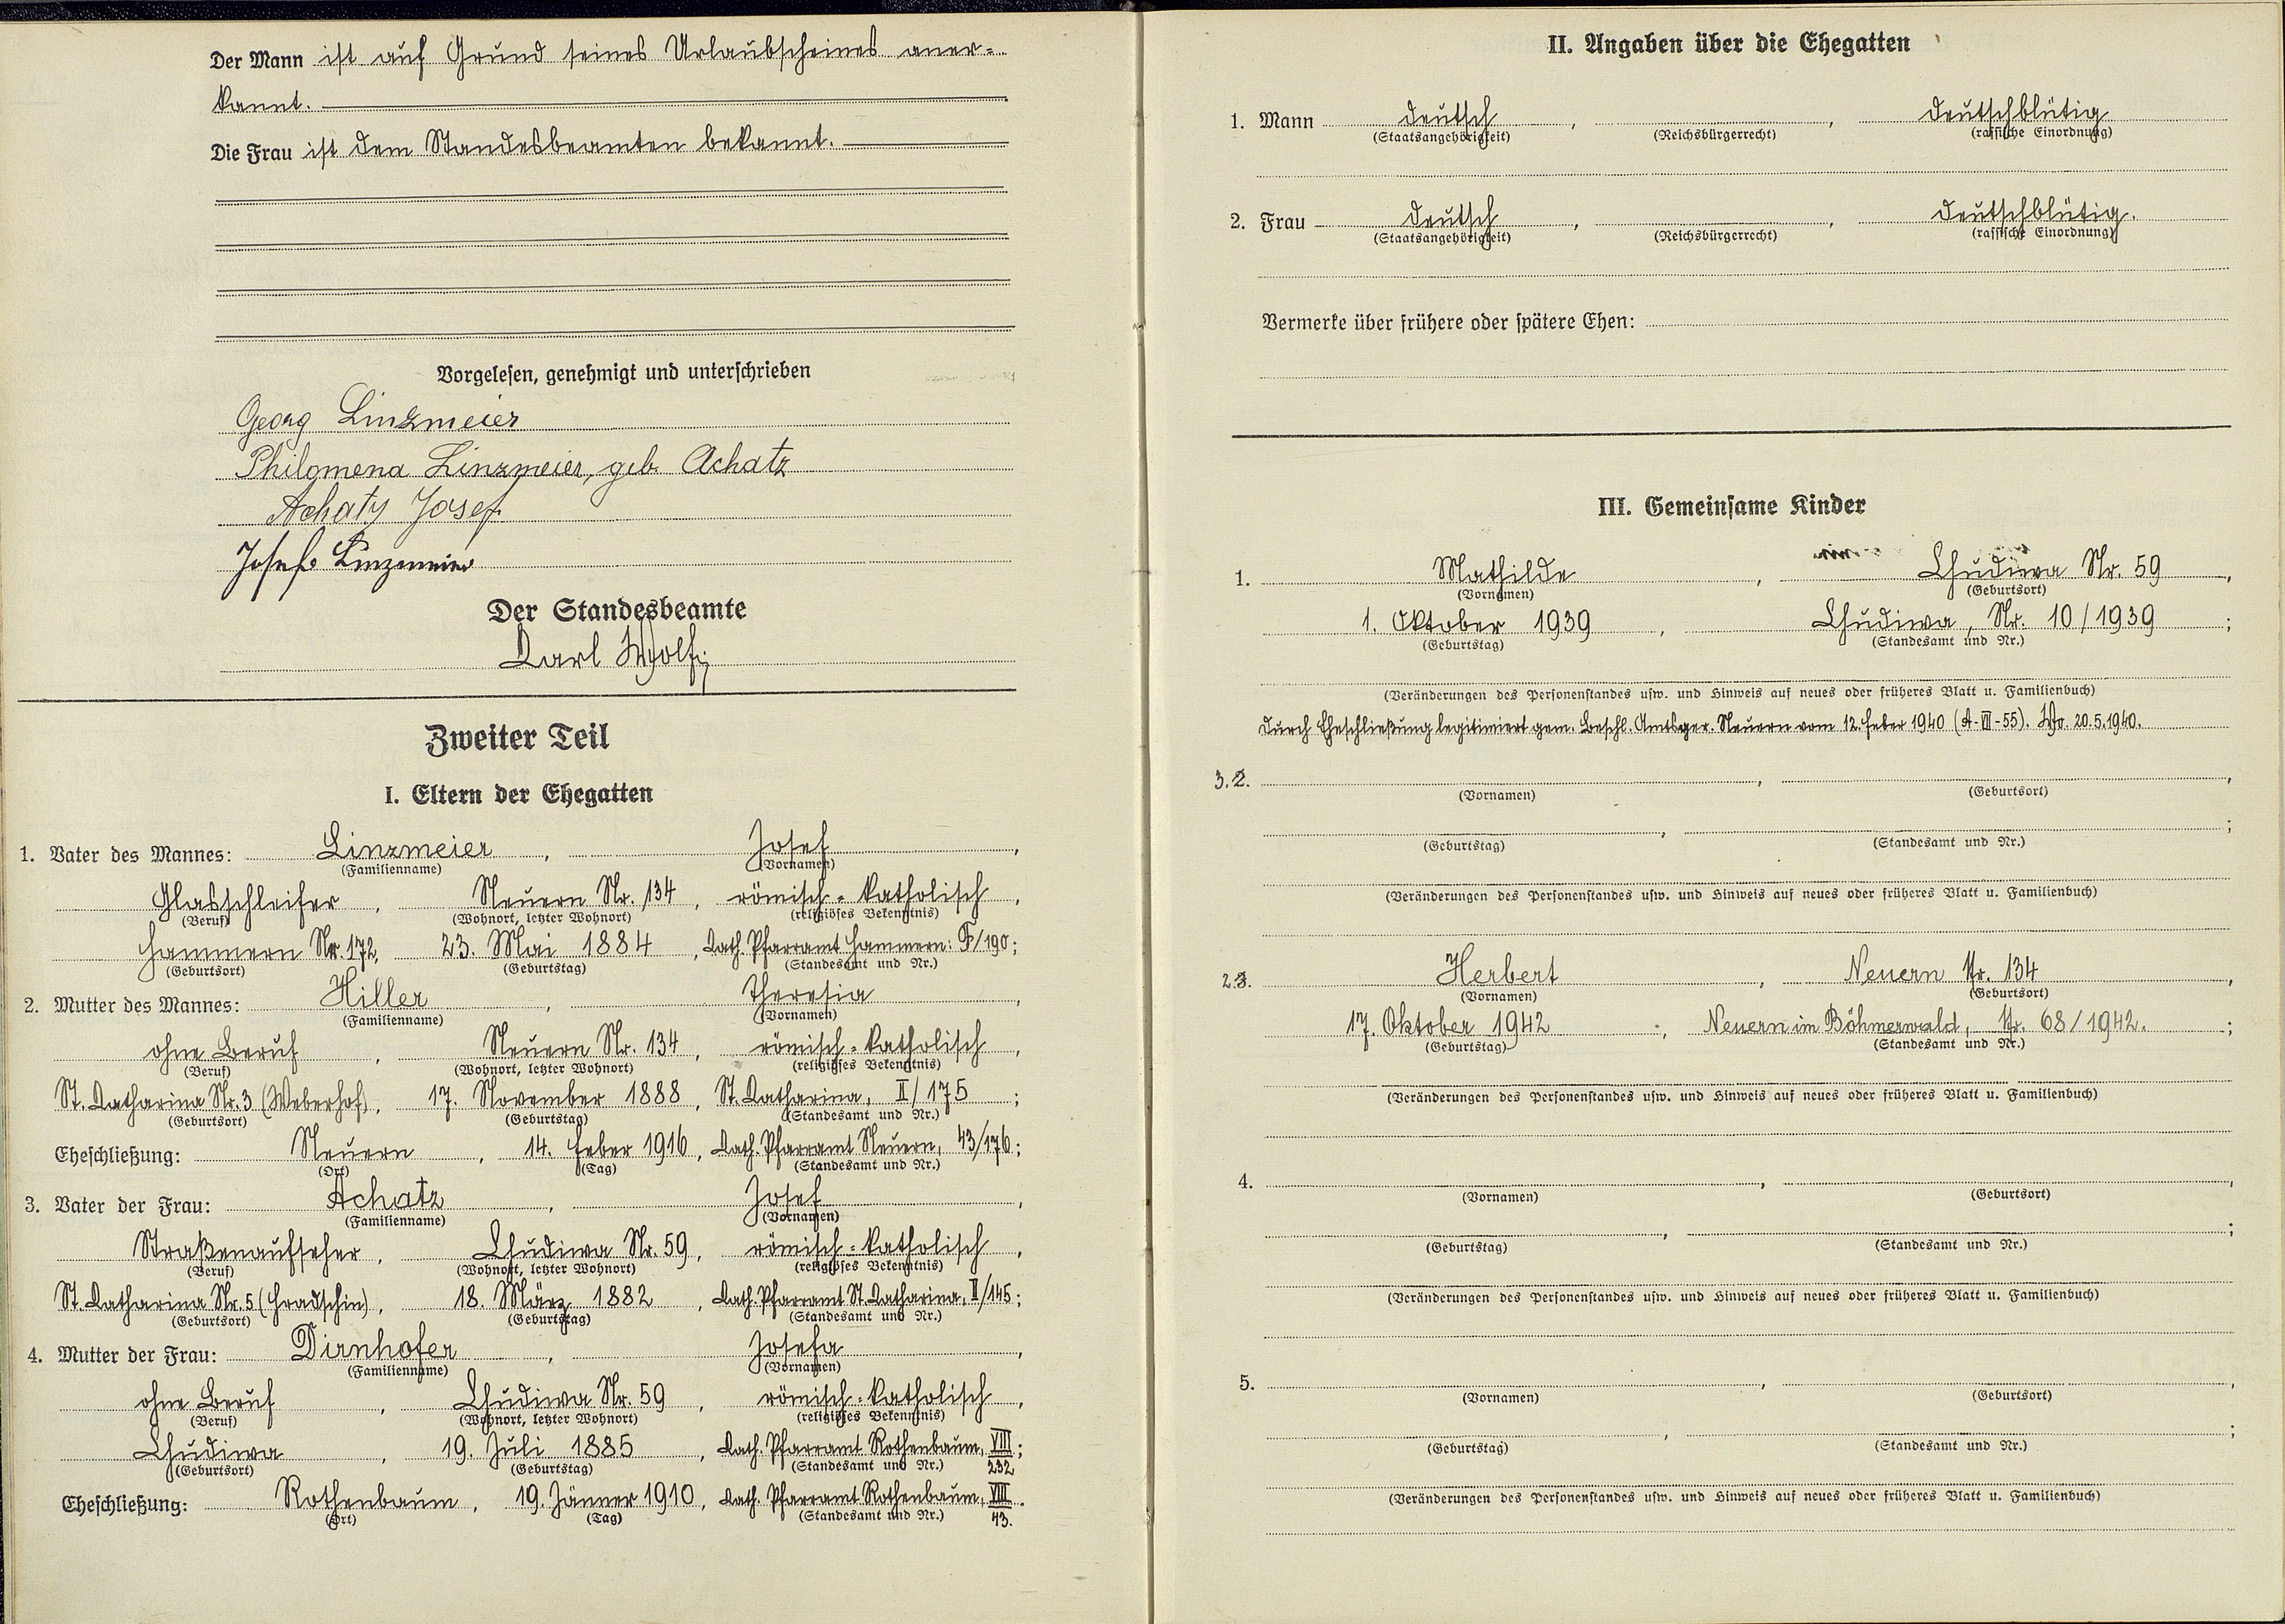 Der Mann ist auf Grund seines Urlaubscheines aner-
kannt.
Die Frau ist dem Standesbeamten bekannt.
Vorgelesen, genehmigt und unterschrieben
Georg Linzmeier
Philomena Linzmeier, geb. Achatz
Achatz Josef
Josef Linzmeier
Der Standesbeamte
Karl Wolf
Zweiter Teil
I. Eltern der Ehegatten
1. Vater des Mannes: Linzmeier, Josef,
(Familienname) (Vornamen)
Glasschleifer, Neuern Nr. 134, römisch-katholisch,
(Beruf) (Wohnort, letzter Wohnort) (religiöses Bekenntnis)
Hammern Nr. 172, 23. Mai 1884, Kath. Pfarramt Hammern: F/190;
(Geburtsort) (Geburtstag) (Standesamt und Nr.)
2. Mutter des Mannes: Hiller, Theresia,
(Familienname) (Vornamen)
ohne Beruf, Neuern Nr. 134, römisch-katholisch,
(Beruf) (Wohnort, letzter Wohnort) (religiöses Bekenntnis)
St. Katharina Nr. 3 (Weberhof), 17. November 1888, St. Katharina, II/175;
(Geburtsort) (Geburtstag) (Standesamt und Nr.)
Eheschließung: Neuern, 14. Feber 1916, Kath. Pfarramt Neuern, 43/176;
(Ort) (Tag) (Standesamt und Nr.)
3. Vater der Frau: Achatz, Josef,
(Familienname) (Vornamen)
Straßenaufseher, Chudiwa Nr. 59, römisch-katholisch,
(Beruf) (Wohnort, letzter Wohnort) (religiöses Bekenntnis)
St. Katharina Nr. 5 (Hradschin), 18. März 1882, Kath. Pfarramt St. Katharina, II/145;
(Geburtsort) (Geburtstag) (Standesamt und Nr.)
4. Mutter der Frau: Dirnhofer, Josefa,
(Familienname) (Vornamen)
ohne Beruf, Chudiwa Nr. 59, römisch-katholisch,
(Beruf) (Wohnort, letzter Wohnort) (religiöses Bekenntnis)
Chudiwa, 19. Juli 1885, Kath. Pfarramt Rothenbaum, VIII/232;
(Geburtsort) (Geburtstag) (Standesamt und Nr.)
Eheschließung: Rothenbaum, 19. Jänner 1910, Kath. Pfarramt Rothenbaum, VIII/43.
(Ort) (Tag) (Standesamt und Nr.)
II. Angaben über die Ehegatten
1. Mann deutsch, , deutschblütig
(Staatsangehörigkeit) (Reichsbürgerrecht) (rassische Einordnung)
2. Frau deutsch, , deutschblütig.
(Staatsangehörigkeit) (Reichsbürgerrecht) (rassische Einordnung)
Vermerke über frühere oder spätere Ehen:
III. Gemeinsame Kinder
1. Mathilde, Chudiwa Nr. 59,
(Vornamen) (Geburtsort)
1. Oktober 1939, Chudiwa, Nr. 10/1939;
(Geburtstag) (Standesamt und Nr.)
(Veränderungen des Personenstandes usw. und Hinweis auf neues oder früheres Blatt u. Familienbuch)
durch Eheschließung legitimiert gem. Beschl. Amtsger. Neuern vom 12. Feber 1940 (A-VII-55). Wo. 20.5.1940.
3. 2. , ,
(Vornamen) (Geburtsort)
, ;
(Geburtstag) (Standesamt und Nr.)
(Veränderungen des Personenstandes usw. und Hinweis auf neues oder früheres Blatt u. Familienbuch)
2. 3. Herbert, Neuern Nr. 134,
(Vornamen) (Geburtsort)
17. Oktober 1942, Neuern im Böhmerwald, Nr. 68/1942.;
(Geburtstag) (Standesamt und Nr.)
(Veränderungen des Personenstandes usw. und Hinweis auf neues oder früheres Blatt u. Familienbuch)
4. , ,
(Vornamen) (Geburtsort)
, ;
(Geburtstag) (Standesamt und Nr.)
(Veränderungen des Personenstandes usw. und Hinweis auf neues oder früheres Blatt u. Familienbuch)
5. , ,
(Vornamen) (Geburtsort)
, ;
(Geburtstag) (Standesamt und Nr.)
(Veränderungen des Personenstandes usw. und Hinweis auf neues oder früheres Blatt u. Familienbuch)